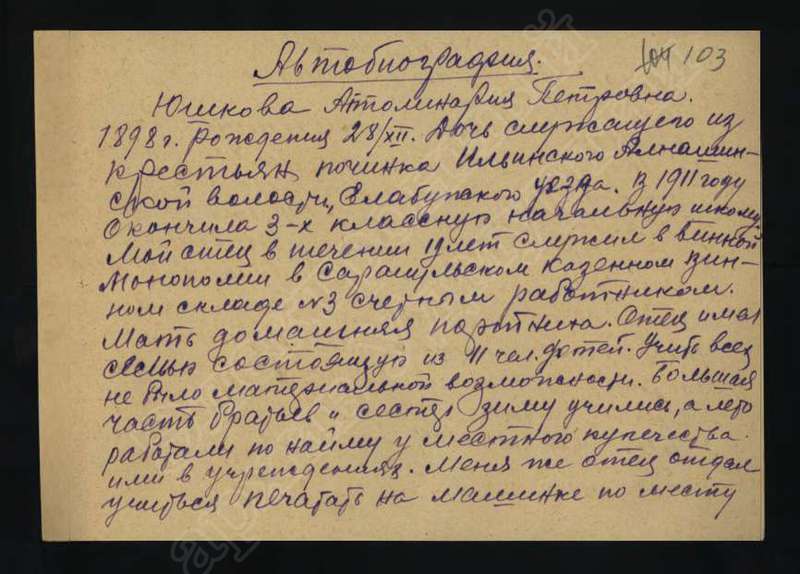 103
Автобиография.
Юшкова Аполинария Петровна.
1898 г. рождения 28/XII. Дочь служащего из
крестьян починка Ильинского Алнашин-
ской волости, Елабужского уезда. В 1911 году
окончила 3-х классную начальную школу.
Мой отец в течении лет служил в винной
монополии в Сарапульском казенном вин-
ном складе №3 счетным работником.
Мать домашняя портниха. Отец имел
семью состоящую из 11 чел. детей. Учить всех
не было материальной возможности. Большая
часть братьев и сестер зиму учились, а лето
работали по найму у местного купечества
или в учреждениях. Меня же отец отдал
учиться печатать на машинке по месту